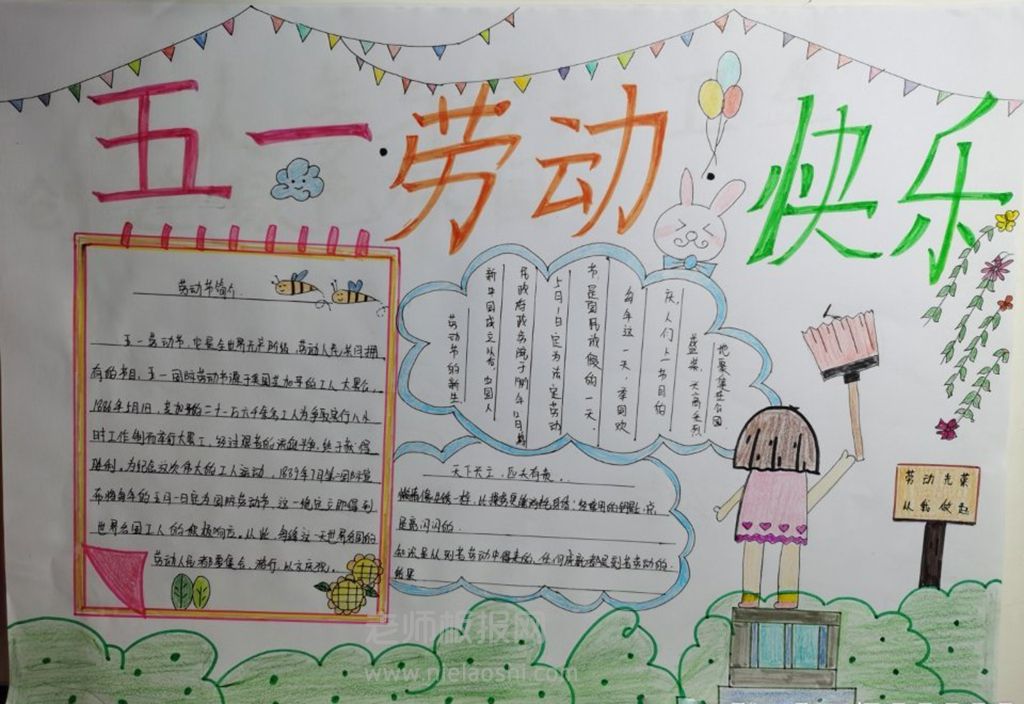 五一劳动快乐
劳动节简介
五一劳动节,它是全世界无产阶级、劳动人民共同拥
有的节日。五一国际劳动节源于美国芝加哥的工人大罢工。
1886年5月1日,芝加哥的二十一万六千余名工人为争取实行八小
时工作制而举行大罢工,经过艰苦的流血斗争,终于获得
胜利。为纪念这次伟大的工人运动,1889年7月第二国际宣
布将每年的五月一日定为国际劳动节。这一决定立即得到
世界各国工人的积极响应。从此,每逢这一天世界各国的
劳动人民都要集会、游行,以示庆祝。
劳动节的新生
新中国成立以后,中国人
民政府政务院于12月
5月1日定为法定劳动
节,是国民放假的一天。
每年这一天,举国欢
庆,人们
盛装,兴高采烈
地聚集在公园
天下兴亡,匹夫有责。
是亮闪闪的。
知识是从刻苦劳动中得来的,任何成就都是刻苦劳动的
结果
劳动光荣
从我做起
老师板报网